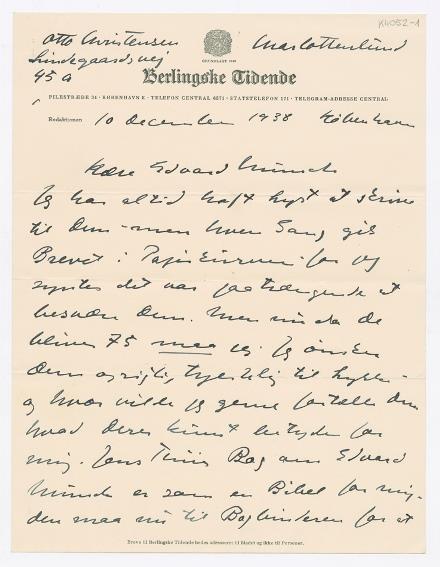 K4052-1
Otto Christensen Charlottenlund
Lindegaardsvej
45 a
GRUNDLAGT 1749
Berlingske Tidende
PILESTRÆDE 34 · KØBENHAVN K · TELEFON CENTRAL 6571 · STATSTELEFON 171 · TELEGRAM-ADRESSE CENTRAL
Redaktionen 10 December 1938 København
Kære Edvard Munch
Jeg har altid haft lyst at skrive
til Dem - men hver Gang gik
Brevet i Papirkurven - for jeg
syntes det var paatrængende at
besvære Dem. Men nu da De
bliver 75 maa jeg. Jeg ønsker
Dem oprigtig, hjertelig til Lykke -
og hvor vilde jeg gerne fortælle Dem
hvad Deres Kunst betyder for
mig. Jens Thiis Bog om Edvard
Munch er som en Bibel for mig -
den maa nu til Bogbinderen for at
Breve til Berlingske Tidende bedes adresseret til Bladet og ikke til Personer.